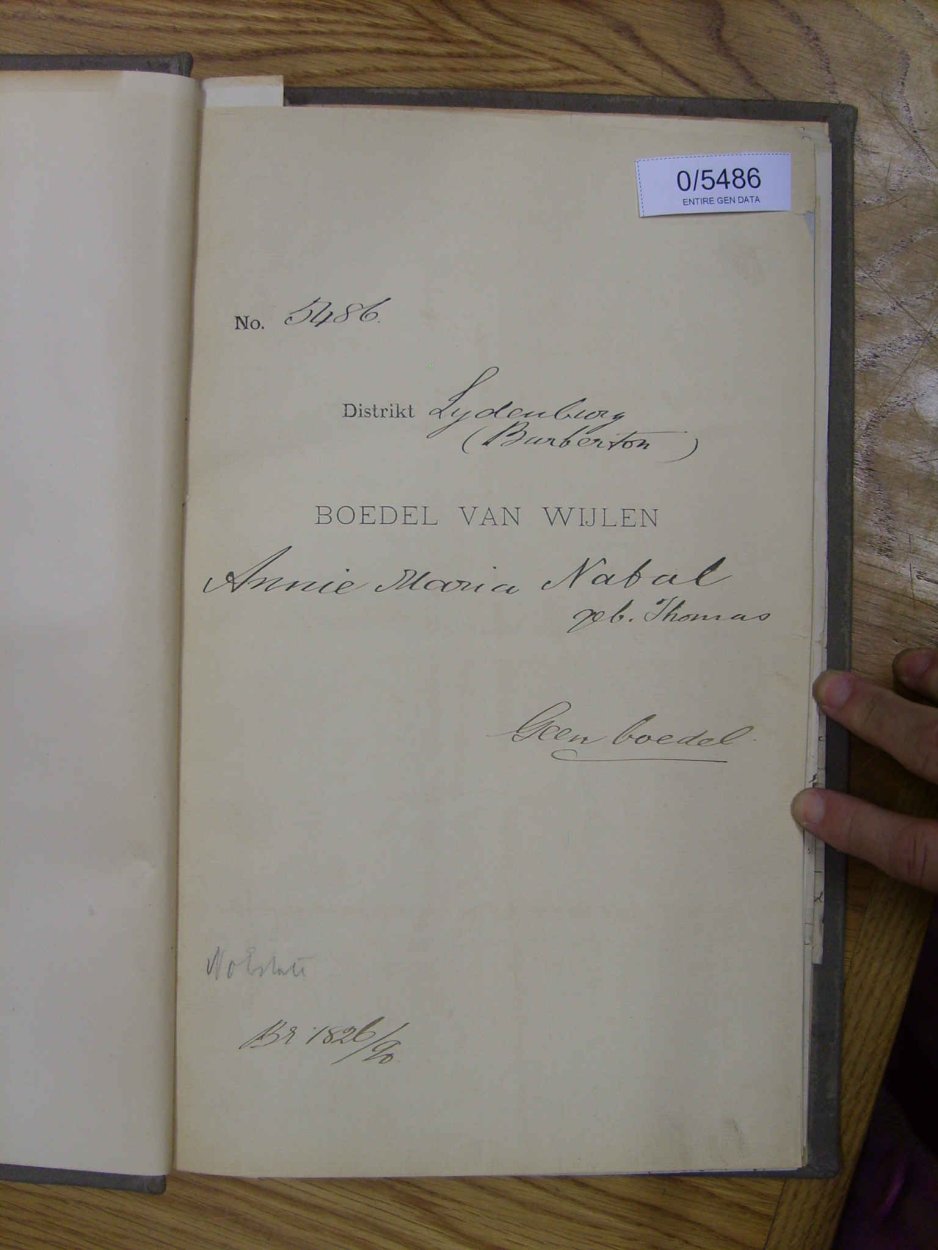 0/5486
ENTIRE GEN DATA
No. 5486
Distrikt Lydenburg
(Barberton)
BOEDEL VAN WIJLEN
Annie Maria Nabal
geb. Thomas
Geen boedel
No Estate
BR 1826/90